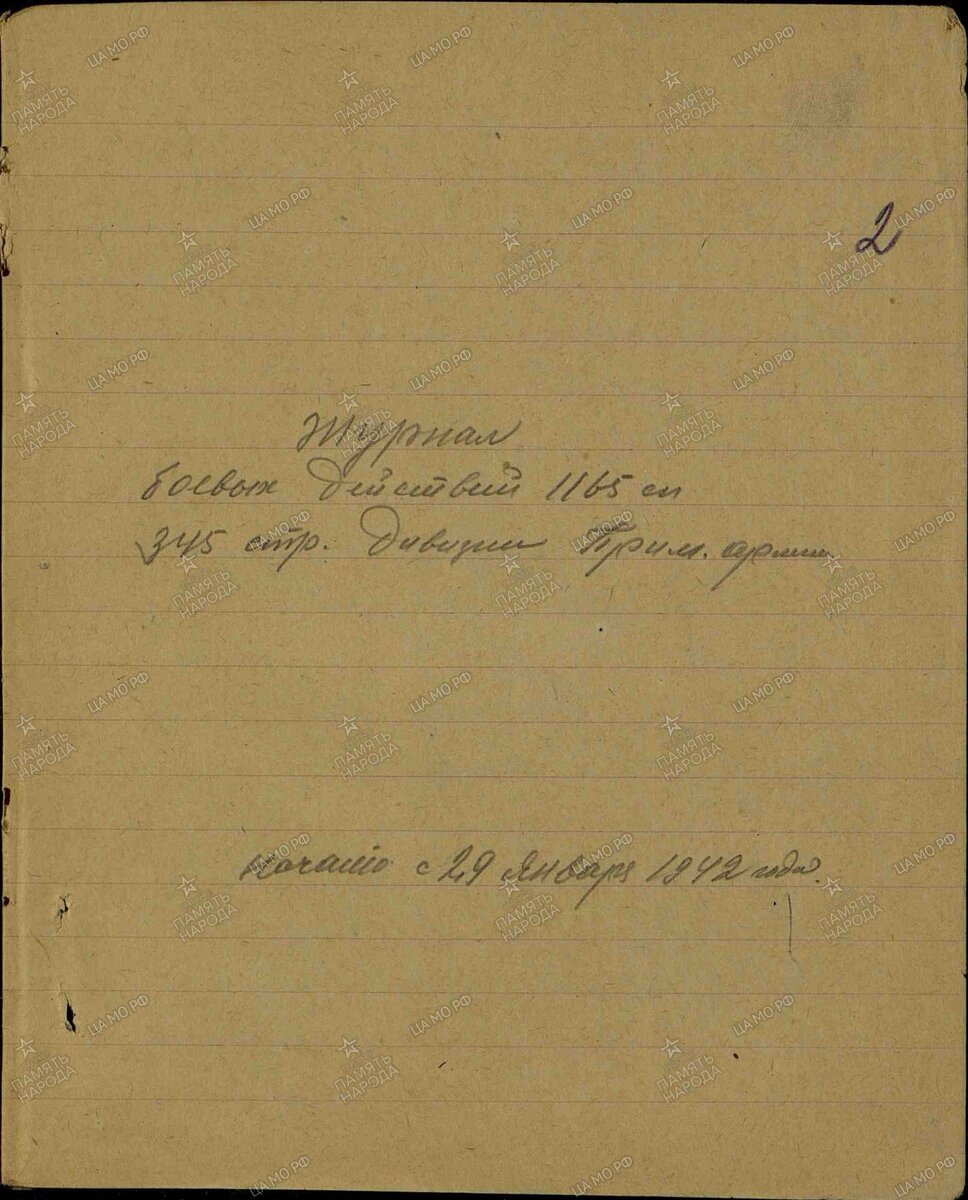 2
Журнал
боевых действий 1165 сп
345 стр. дивизии Прим. армии
начато с 29 января 1942 года.